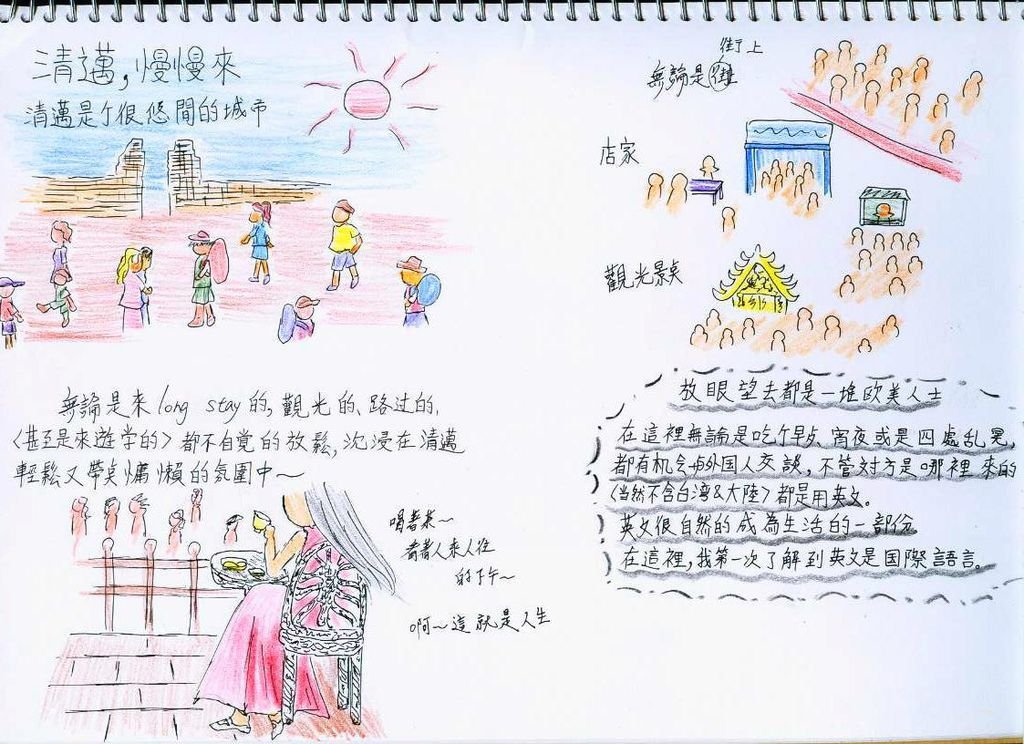 清邁，慢慢來
清邁是个很悠閒的城市
無論是來 long stay 的，觀光的、路过的，
〈甚至是來遊学的〉都不自覚的放鬆，沉浸在清邁
輕鬆又帶点慵懶的氛圍中～
喝着茶～
看着人來人往
的下午～
啊～這就是人生
街上
無論是
店家
觀光景点
放眼望去都是一堆欧美人士
在這裡無論是吃个早点、宵夜或是四處乱晃，
都有机会与外国人交談，不管对方是哪裡來的
〈当然不含台湾&大陸〉都是用英文。
英文很自然的成為生活的一部份
在這裡，我第一次了解到英文是国際語言。